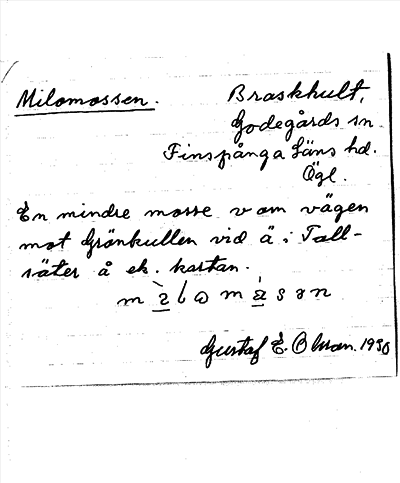 Milomossen. Braskhult,
Godegårds sn.
Finspånga Läns hd.
Ögl.
En mindre mosse v om vägen
mot Grönkullen vid ä i Tall-
säter å ek. kartan.
Gustaf E. Olsson. 1930